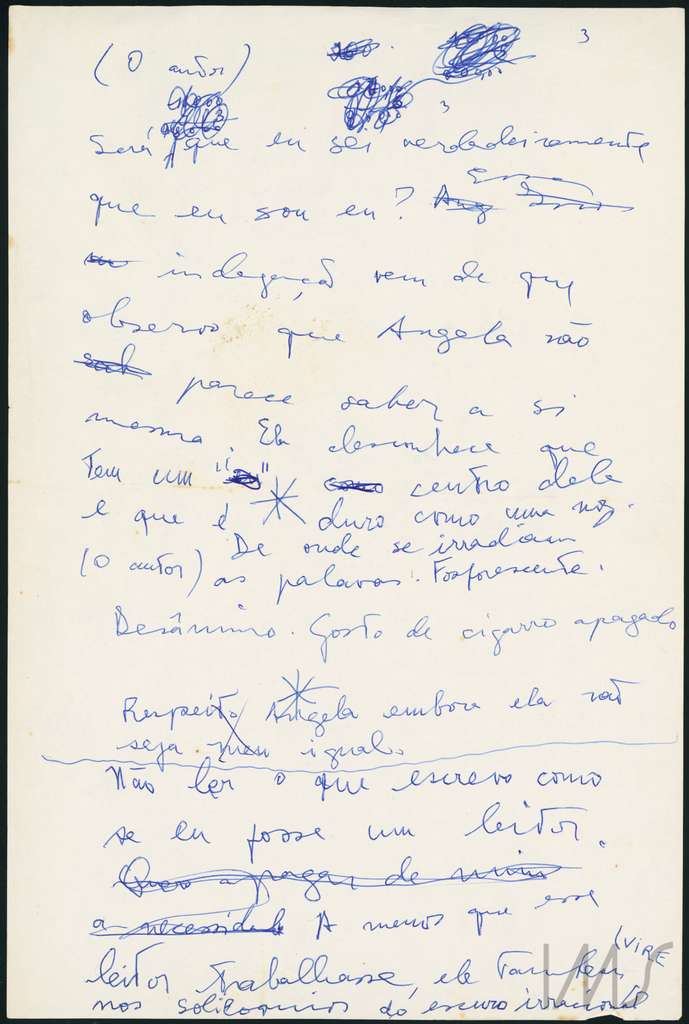 3
(O autor)
3
Será que eu sei verdadeiramente
que eu sou eu? Essa
indagação vem de que
observo que Angela não
parece saber a si
mesma. Ela desconhece que
tem um " " centro dela
e que é duro como uma noz.
De onde se irradiam
(O autor) as palavras. Fosforescente.
Desânimo. Gosto de cigarro apagado
Respeito Angela embora ela não
seja meu igual.
Não ler o que escrevo como
se eu fosse um leitor.
Quero apagar de mim
a necessidade A menos que esse
(VIRE
leitor trabalhasse, ele também
nos solilóquios do escuro irracional
IMS